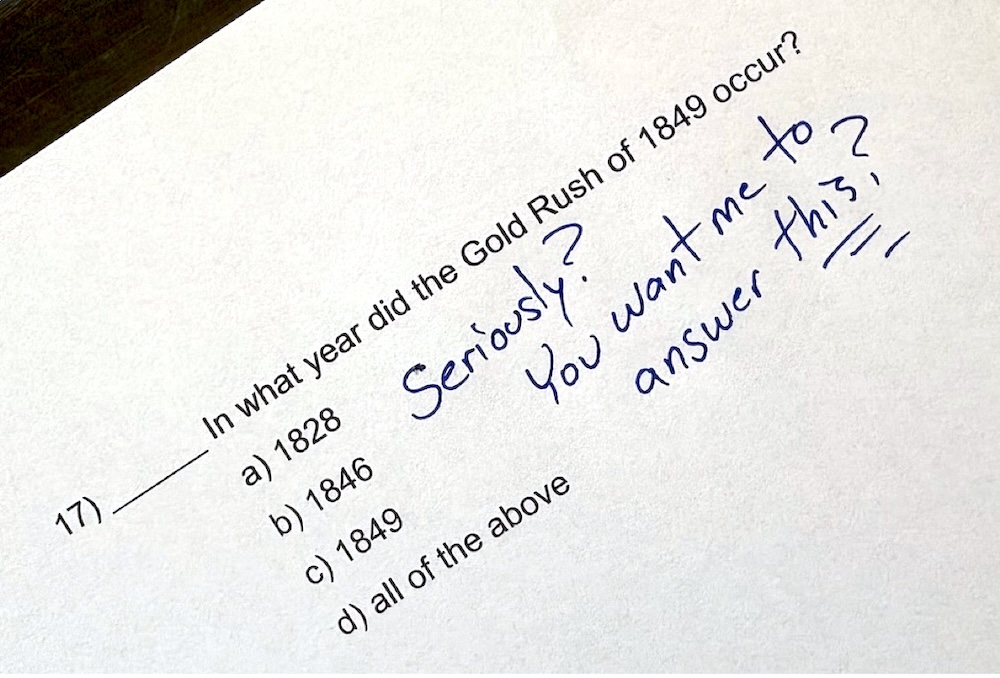 17) ______ In what year did the Gold Rush of 1849 occur?
a) 1828
b) 1846
c) 1849
d) all of the above
Seriously?
You want me to
answer this?